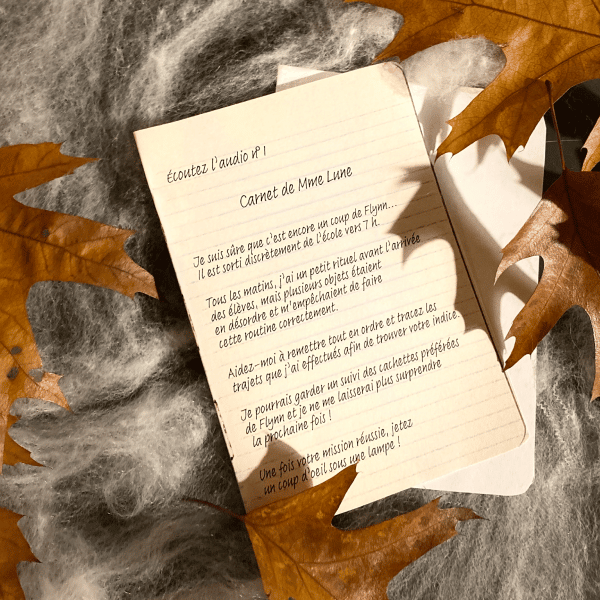 Écoutez l'audio n° 1
Carnet de Mme Lune
Je suis sûre que c'est encore un coup de Flynn...
Il est sorti discrètement de l'école vers 7 h.
Tous les matins, j'ai un petit rituel avant l'arrivée
des élèves, mais plusieurs objets étaient
en désordre et m'empêchaient de faire
cette routine correctement.
Aidez-moi à remettre tout en ordre et tracez les
trajets que j'ai effectués afin de trouver votre indice.
Je pourrais garder un suivi des cachettes préférées
de Flynn et je ne me laisserai plus surprendre
la prochaine fois !
Une fois votre mission réussie, jetez
un coup d'oeil sous une lampe !